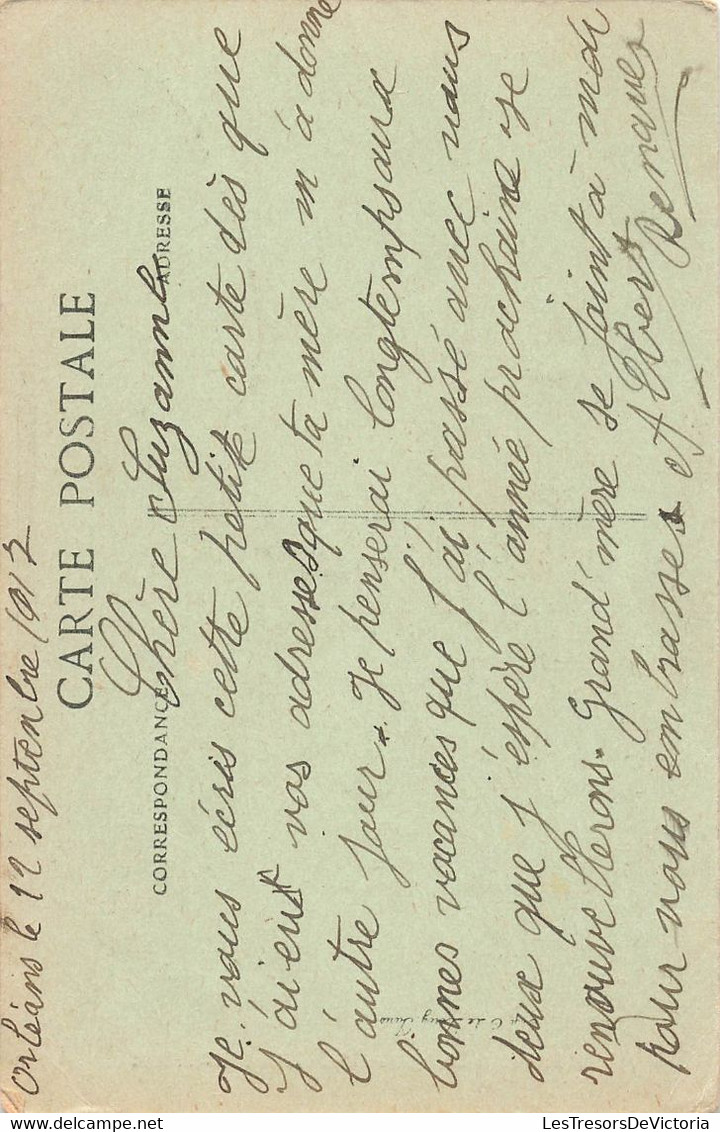 Orléans le 12 septembre 1917
CARTE POSTALE
CORRESPONDANCE
ADRESSE
Chère Suzanne
Je vous écris cette petite carte dès que
j'ai eut vos adresses que ta mère m'à donné
l'autre jour. Je penserai longtemps aux
bonnes vacances que j'ai passé avec vous
deux que j'éspère l'année prochaine se
renouvelleront. Grand'mère se joint à moi
pour vous embrasser
Albert Renaud
LesTresorsDeVictoria